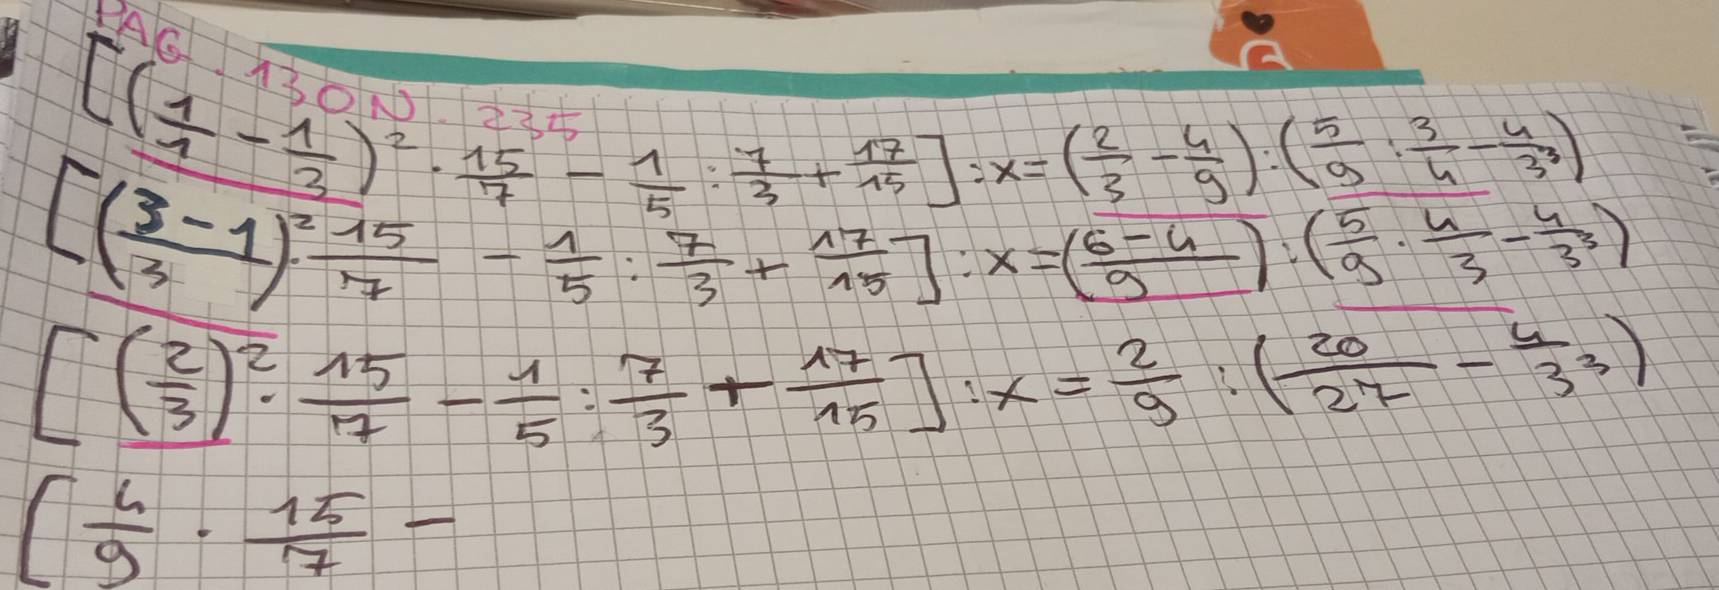 PAG. 130 N. 235
[(1/1 - 1/3)² · 15/7 - 1/5 : 7/3 + 17/15] : x = (2/3 - 4/9) : (5/9 : 3/4 - 4/3³)
[(3-1/3)² · 15/7 - 1/5 : 7/3 + 17/15] : x = (6-4/9) : (5/9 · 4/3 - 4/3³)
[(2/3)² · 15/7 - 1/5 : 7/3 + 17/15] : x = 2/9 : (20/27 - 4/3³)
[4/9 · 15/7 -